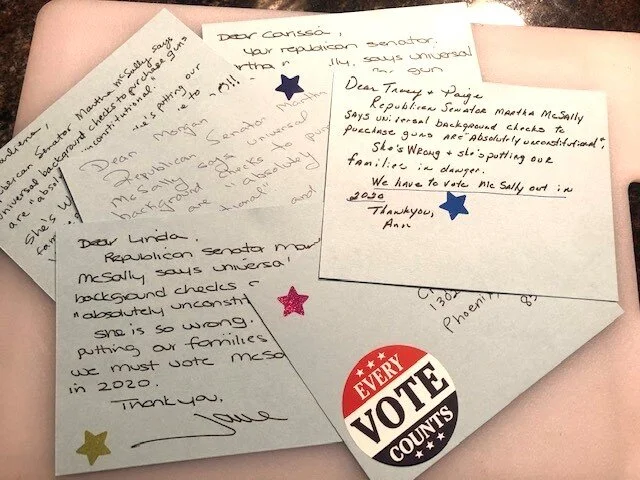 Dear Carissa,
Your republican senator,
says universal
gun
Senator Martha McSally says
universal background checks to purchase guns
are "abso
"unconstitutional."
She's W
he's putting our
to
!!!
Dear Morgan
Republican Senator Martha
McSally says universal
background checks to pur
are "absolutely
tional" and
Dear Tracey + Paige
Republican Senator Martha McSally
says universal background checks to
purchase guns are "absolutely unconstitutional"
She's wrong + she's putting our
families in danger.
We have to vote McSally out in
2020
Thankyou,
Ann
Dear Linda,
Republican senator mar
McSally says universa
background checks
"absolutely unconstit
She is so wrong.
putting our families
we must vote mcsa
in 2020.
Thank you,
Jane
1302
Phoeni
85
EVERY
VOTE
COUNTS